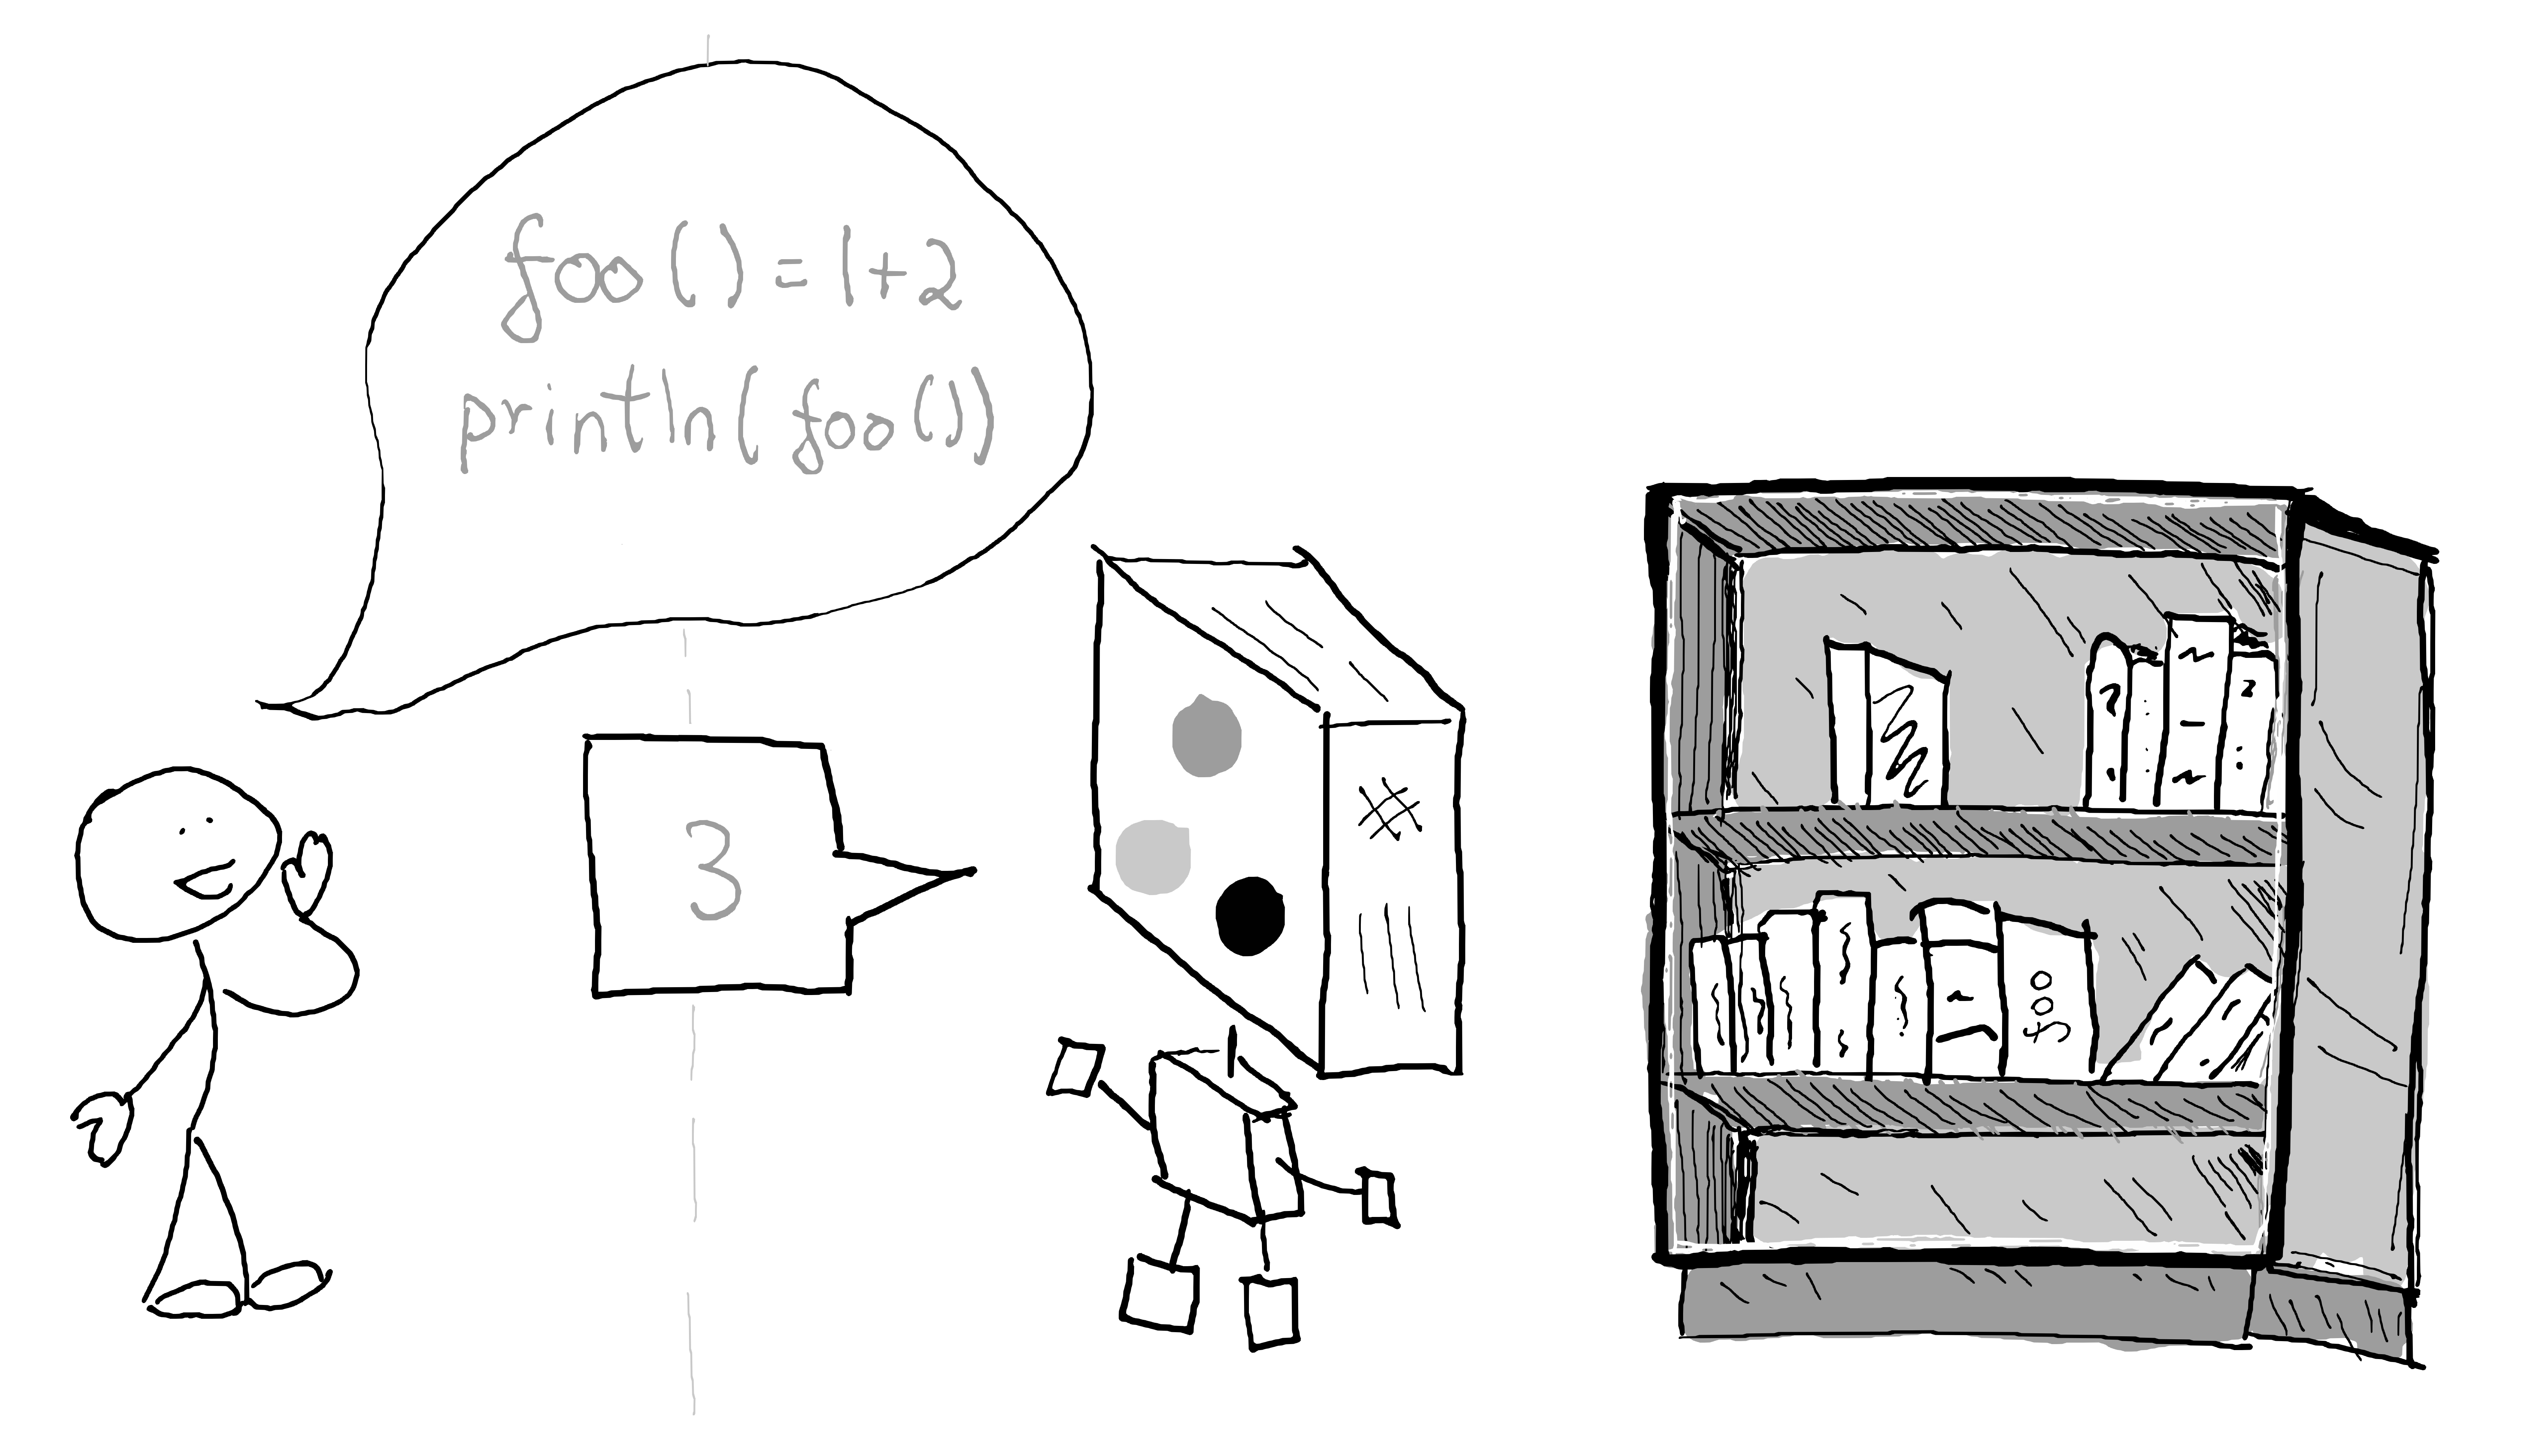 foo() = 1+2
println(foo())
3
foo